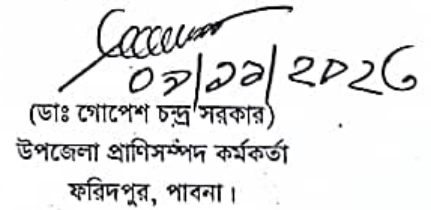 ০৯|১১|২০২৫
(ডাঃ গোপেশ চন্দ্র সরকার)
উপজেলা প্রাণিসম্পদ কর্মকর্তা
ফরিদপুর, পাবনা।